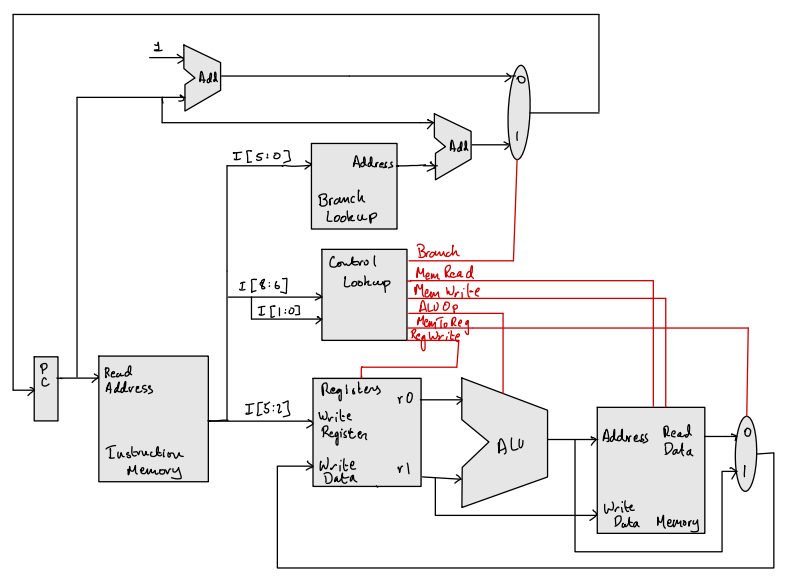 1
Add
0
1
Add
I[5:0]
Address
Branch
Lookup
Branch
Control
Lookup
MemRead
I[8:6]
MemWrite
I[1:0]
ALUOp
MemToReg
RegWrite
P
C
Read
Address
Instruction
Memory
I[5:2]
Registers
r0
Write
Register
Write
Data
r1
ALU
Address
Read
Data
Write
Data
Memory
0
1